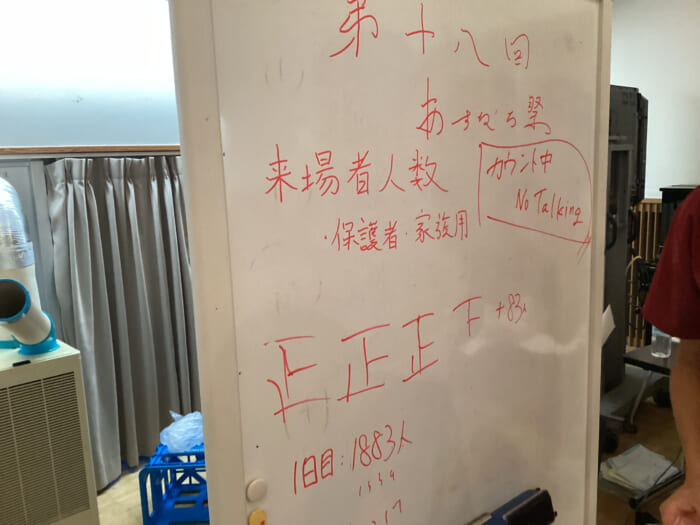 第十八回
あすなろ祭
来場者人数
カウント中
No Talking
・保護者・家族用
正正正下 +83人
1日目：1883人